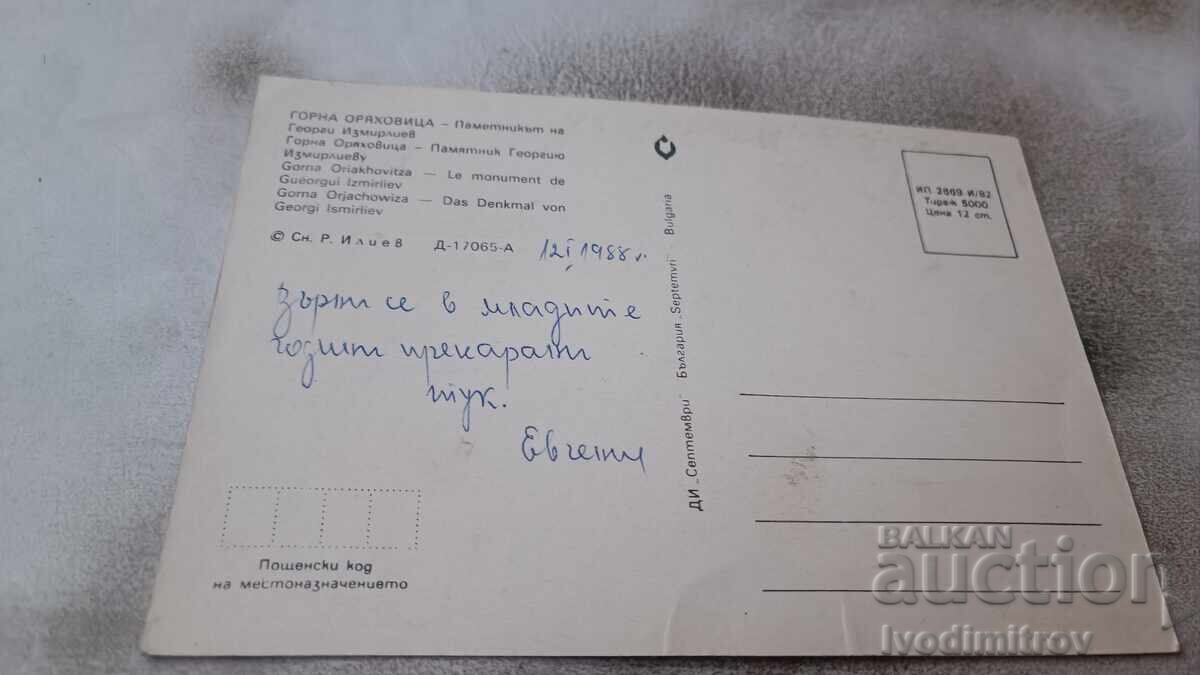 ГОРНА ОРЯХОВИЦА – Паметникът на
Георги Измирлиев
Горна Оряховица – Памятник Георгию
Измирлиеву
Gorna Oriakhovitza — Le monument de
Guéorgui Izmirliev
Gorna Orjachowiza — Das Denkmal von
Georgi Ismirliev
© Сн. Р. Илиев Д-17065-А 12 I 1988 г.
се в младите
години прекарани
тук!
Евгени
Пощенски код
на местоназначението
ДИ „Септември" България „Septemvri" Bulgaria
ИП 2669 И/82
Тираж 5000
Цена 12 ст.
BALKAN
auction
Ivodimitrov